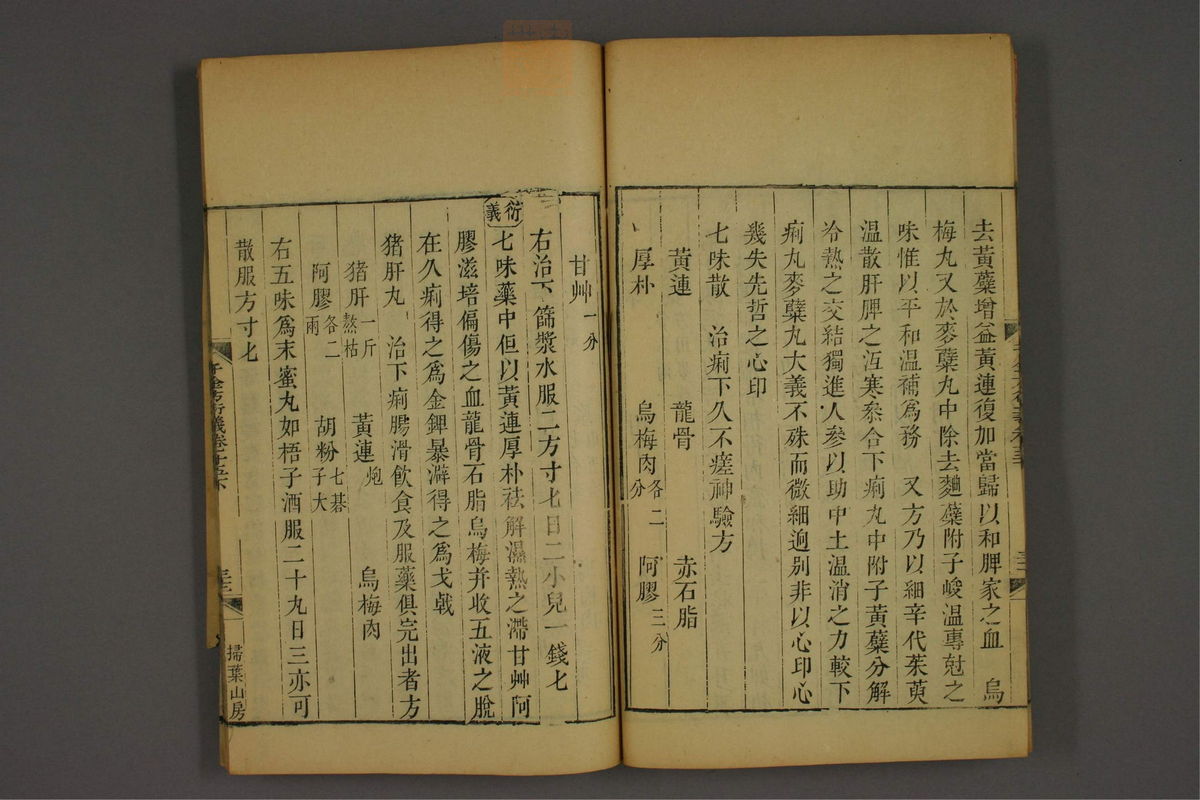 去黃蘗增益黃連復加當歸以和脾家之血　烏
梅丸又於麥蘗丸中除去麯蘗附子峻溫專尅之
味惟以平和溫補爲務　又方乃以細辛代茱萸
溫散肝脾之沍寒叅合下痢丸中附子黃蘗分解
冷熱之交結獨進人參以助中土溫消之力較下
痢丸麥蘗丸大義不殊而微細逈别非以心印心
幾失先哲之心印
七味散　治痢下久不瘥神驗方
黃連　龍骨　赤石脂
厚朴　烏梅肉各二分　阿膠三分
甘艸一分
右治下篩漿水服二方寸匕日二小兒一錢匕
衍義
七味藥中但以黃連厚朴祛解濕熱之滯甘艸阿
膠滋培偏傷之血龍骨石脂烏梅并收五液之脫
在久痢得之爲金鎞暴澼得之爲戈戟
猪肝丸　治下痢腸滑飲食及服藥俱完出者方
猪肝一斤熬枯　黃連炮　烏梅肉
阿膠各二兩　胡粉七碁子大
右五味爲末蜜丸如梧子酒服二十丸日三亦可
散服方寸匕
千金方衍義卷十五下
掃葉山房